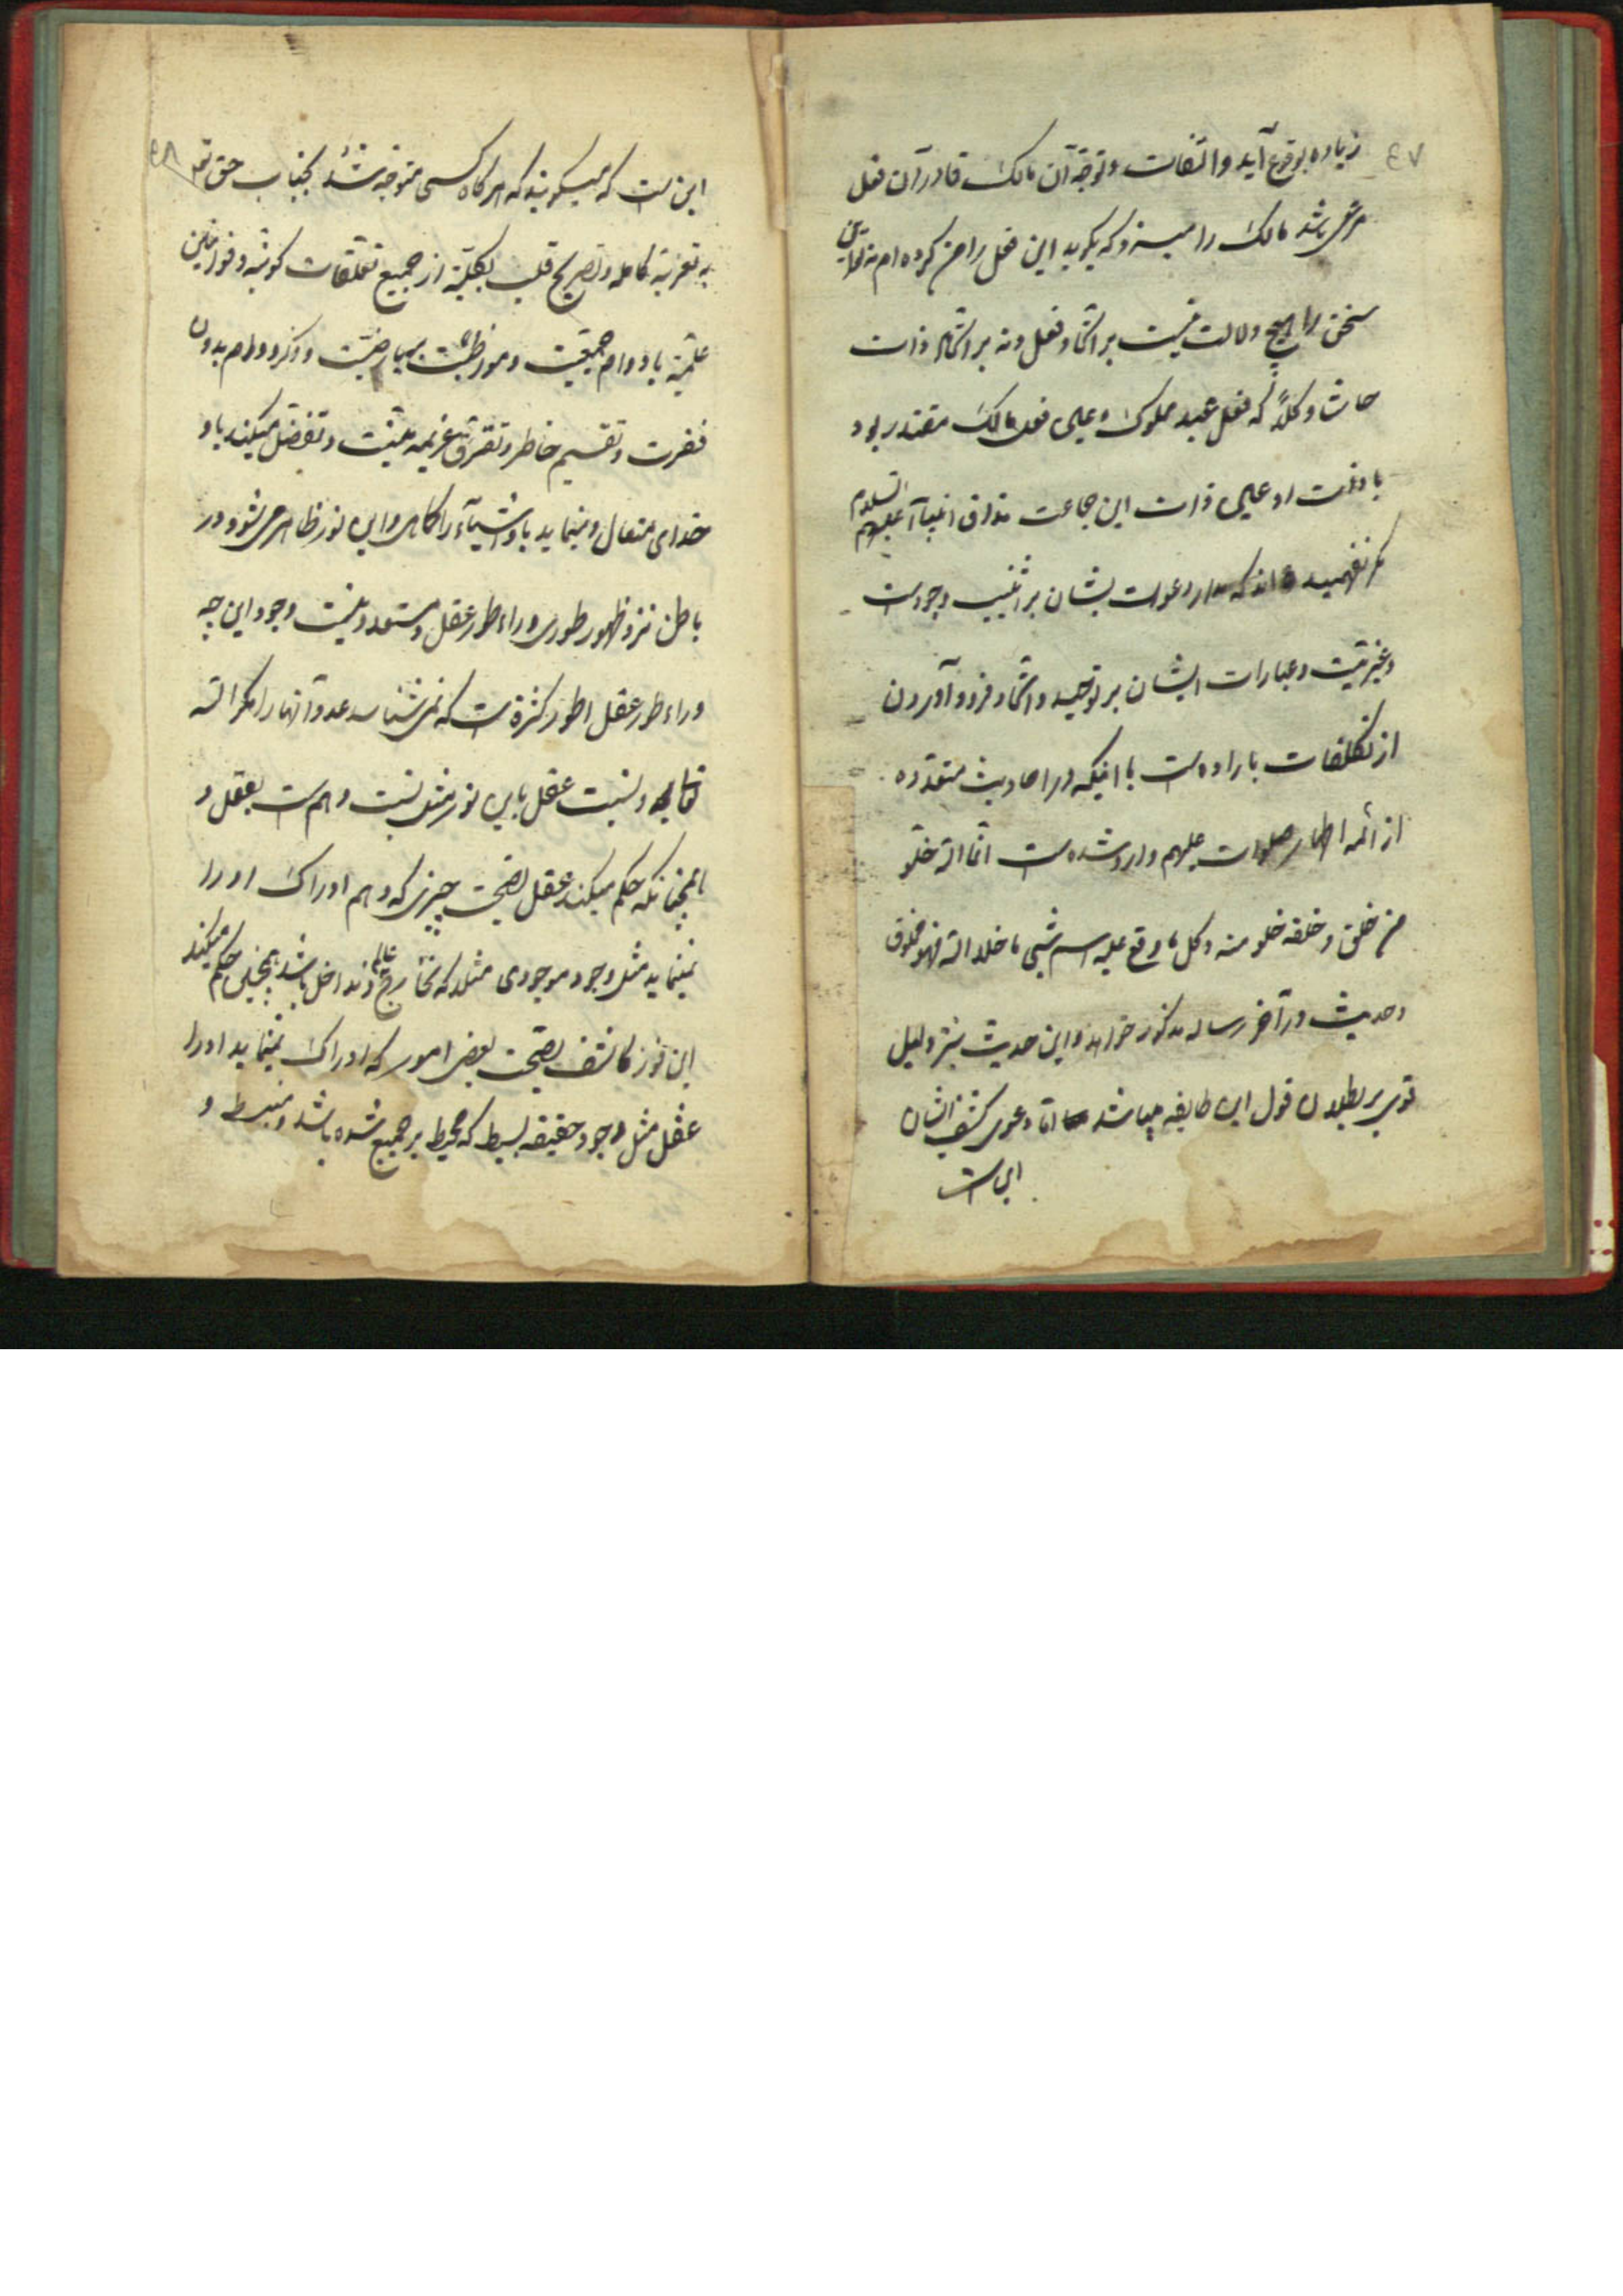 ٤٧
زیاده بوقوع آید و التفات و توجّه آن مالک قادر آن فعل
مرعی باشد مالک را میسزد که بگوید این فعل را من کرده‌ام نه تو این
سخن را هیچ دلالت نیست بر اتحاد فعل و نه بر اتحاد ذات
حاشا و کلّا که فعل عبد مملوک عین فعل مالک مقتدر بود
یا ذات او عین ذات این جماعت مذاق انبیآء علیهم السلام
مکر نفهمیده‌اند که مدار دعوات ایشان بر اثنینیت وجودست
و غیریّت و عبارات ایشان بر توحید و اتحاد فرود آوردن
از تکلفات بارده است با اینکه در احادیث متعدده
از ائمه اطهار صلوات علیهم وارد شده است انّ الله خلو
من خلق و خلقه خلو منه و کل ما وقع علیه اسم شیی ما خلا الله فهو مخلوق
و حدیث در آخر رساله مذکور خواهد و این حدیث نیز دلیل
قوی بر بطلان قول این طایفه میباشد امّا دعوی کشف ایشان
این است
٤٨
این است که میگویند که هرگاه کسی متوجه شد بجناب حق تعه
به تعریة کامله و تفریغ قلب بکلیّة از جمیع تعلقات کونیه و قوانین
علمیّة با دوام جمعیّت و مواظبت و ذکر و دوام بدون
فترت و تقسیم خاطر و تفرق عزیمه منّت و تفضل میکند باو
خدای متعال و مینماید باو اشیآء را کماهی و این نور ظاهر می‌شود در
باطن نزد ظهور طوری وراء طور عقل و مستبعد نیست وجود این چه
وراء طور عقل اطوار کثیرة است که نمی‌شناسد عدد آنها را مکر الله
تعالی و نسبت عقل باین نور مثل نسبت وهم است بعقل و
همچنانکه حکم میکند عقل بصحّت چیزی که وهم ادراک او را
نمینماید مثل وجود موجودی مثلا که نه خارج عالم و نه داخل باشد همچنین حکم میکند
این نور کاشف بصحّت بعضی امور که ادراک نمینماید او را
عقل مثل وجود حقیقه بسیط که محیط بر جمیع شده باشد و منبسط و